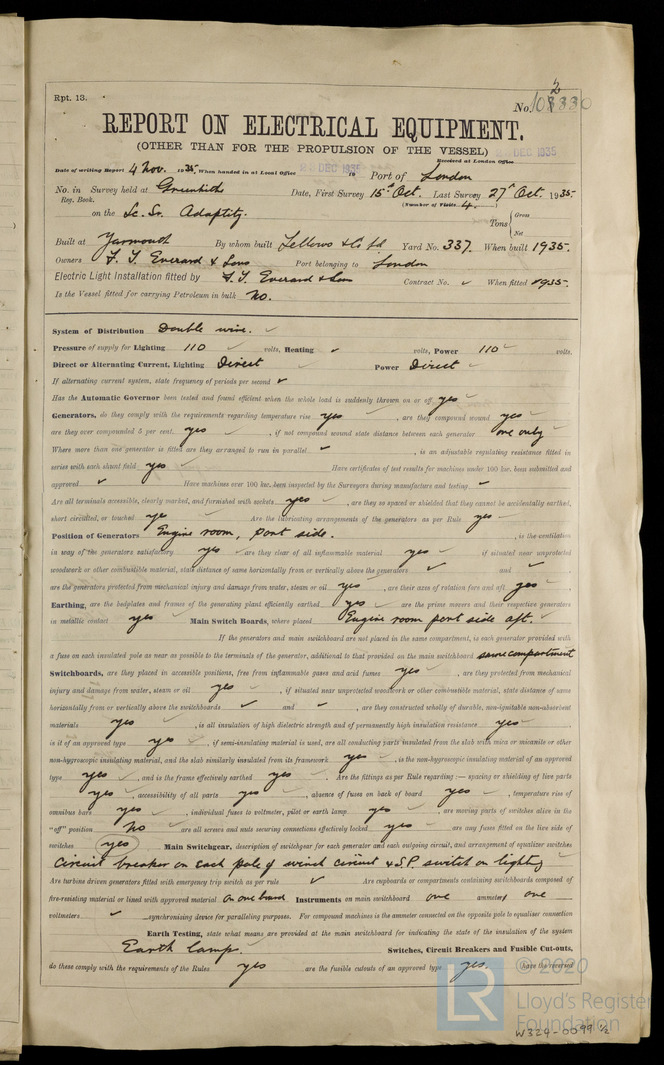 Rpt. 13.
2
No. 108330
REPORT ON ELECTRICAL EQUIPMENT.
(OTHER THAN FOR THE PROPULSION OF THE VESSEL)
DEC 1935
Received at London Office
Date of writing Report 4 Nov. 1935. When handed in at Local Office DEC 1935 19 Port of London
No. in Survey held at Greenhithe Date, First Survey 15th Oct. Last Survey 27th Oct. 1935.
Reg. Book. (Number of Visits 4.)
on the Sc. Sr. Adaptity. Tons { Gross
Net
Built at Yarmouth By whom built Fellows & Co Ld Yard No. 337. When built 1935.
Owners F. T. Everard & Sons Port belonging to London
Electric Light Installation fitted by F. T. Everard & Sons Contract No. ✓ When fitted 1935.
Is the Vessel fitted for carrying Petroleum in bulk No.
System of Distribution Double wire. ✓
Pressure of supply for Lighting 110 ✓ volts, Heating ✓ volts, Power 110 ✓ volts.
Direct or Alternating Current, Lighting Direct ✓ Power Direct ✓
If alternating current system, state frequency of periods per second ✓
Has the Automatic Governor been tested and found efficient when the whole load is suddenly thrown on or off yes ✓
Generators, do they comply with the requirements regarding temperature rise yes ✓, are they compound wound yes ✓
are they over compounded 5 per cent. yes ✓, if not compound wound state distance between each generator one only ✓
Where more than one generator is fitted are they arranged to run in parallel ✓, is an adjustable regulating resistance fitted in
series with each shunt field yes ✓ Have certificates of test results for machines under 100 kw. been submitted and
approved ✓ Have machines over 100 kw. been inspected by the Surveyors during manufacture and testing ✓
Are all terminals accessible, clearly marked, and furnished with sockets yes ✓, are they so spaced or shielded that they cannot be accidentally earthed,
short circuited, or touched yes ✓ Are the lubricating arrangements of the generators as per Rule yes ✓
Position of Generators Engine room, port side. ✓, is the ventilation
in way of the generators satisfactory yes ✓ are they clear of all inflammable material yes ✓, if situated near unprotected
woodwork or other combustible material, state distance of same horizontally from or vertically above the generators ✓ and ✓
are the generators protected from mechanical injury and damage from water, steam or oil yes ✓, are their axes of rotation fore and aft yes ✓.
Earthing, are the bedplates and frames of the generating plant efficiently earthed yes ✓ are the prime movers and their respective generators
in metallic contact yes ✓ Main Switch Boards, where placed Engine room port side aft. ✓
If the generators and main switchboard are not placed in the same compartment, is each generator provided with
a fuse on each insulated pole as near as possible to the terminals of the generator, additional to that provided on the main switchboard same compartment
Switchboards, are they placed in accessible positions, free from inflammable gases and acid fumes yes ✓, are they protected from mechanical
injury and damage from water, steam or oil yes ✓, if situated near unprotected woodwork or other combustible material, state distance of same
horizontally from or vertically above the switchboards ✓ and ✓, are they constructed wholly of durable, non-ignitable non-absorbent
materials yes ✓, is all insulation of high dielectric strength and of permanently high insulation resistance yes ✓
is it of an approved type yes ✓, if semi-insulating material is used, are all conducting parts insulated from the slab with mica or micanite or other
non-hygroscopic insulating material, and the slab similarly insulated from its framework yes ✓, is the non-hygroscopic insulating material of an approved
type yes ✓, and is the frame effectively earthed yes ✓. Are the fittings as per Rule regarding:— spacing or shielding of live parts
yes ✓, accessibility of all parts yes ✓, absence of fuses on back of board yes ✓, temperature rise of
omnibus bars yes ✓, individual fuses to voltmeter, pilot or earth lamp yes ✓, are moving parts of switches alive in the
"off" position No ✓ are all screws and nuts securing connections effectively locked yes ✓ are any fuses fitted on the live side of
switches yes ✓ Main Switchgear, description of switchgear for each generator and each outgoing circuit, and arrangement of equalizer switches
Circuit breaker on each pole of wind circuit & S.P. switch on lighting ✓
Are turbine driven generators fitted with emergency trip switch as per rule ✓ Are cupboards or compartments containing switchboards composed of
fire-resisting material or lined with approved material on one board Instruments on main switchboard one ammeters one
voltmeters ✓ synchronising device for paralleling purposes. For compound machines is the ammeter connected on the opposite pole to equaliser connection
Earth Testing, state what means are provided at the main switchboard for indicating the state of the insulation of the system
Earth lamp. Switches, Circuit Breakers and Fusible Cut-outs,
do these comply with the requirements of the Rules yes ✓, are the fusible cutouts of an approved type yes. ✓, have the reversed
LR
© 2020
Lloyd's Register
Foundation
W324-0099 ½